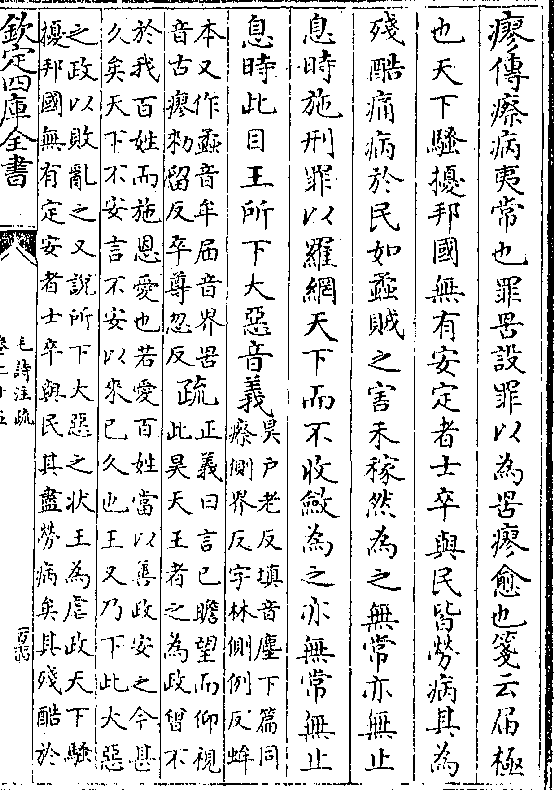 瘳傳瘵病夷常也罪罟設罪以為罟瘳愈也箋云屆極
也天下騷擾邦國無有安定者士卒與民皆勞病其為
殘酷痛病於民如蟊賊之害禾稼然為之無常亦無止
息時施刑罪以羅網天下而不收斂為之亦無常無止
息時此目王所下大惡音義昊户老反填音塵下篇同
瘵側界反字林側例反蛑
本又作蟊音牟届音界罟
音古瘳勑留反卒尊忽反
疏正義曰言已瞻望而仰視
此昊天王者之為政曾不
於我百姓而施恩愛也若愛百姓當以善政安之今甚
久矣天下不安言不安以來已久也王又乃下此大惡
之政以敗亂之又說所下大惡之状王為虐政天下騷
擾邦國無有定安者士卒與民其盡勞病矣其殘酷於
欽定四庫全書
毛詩注疏
卷二十五